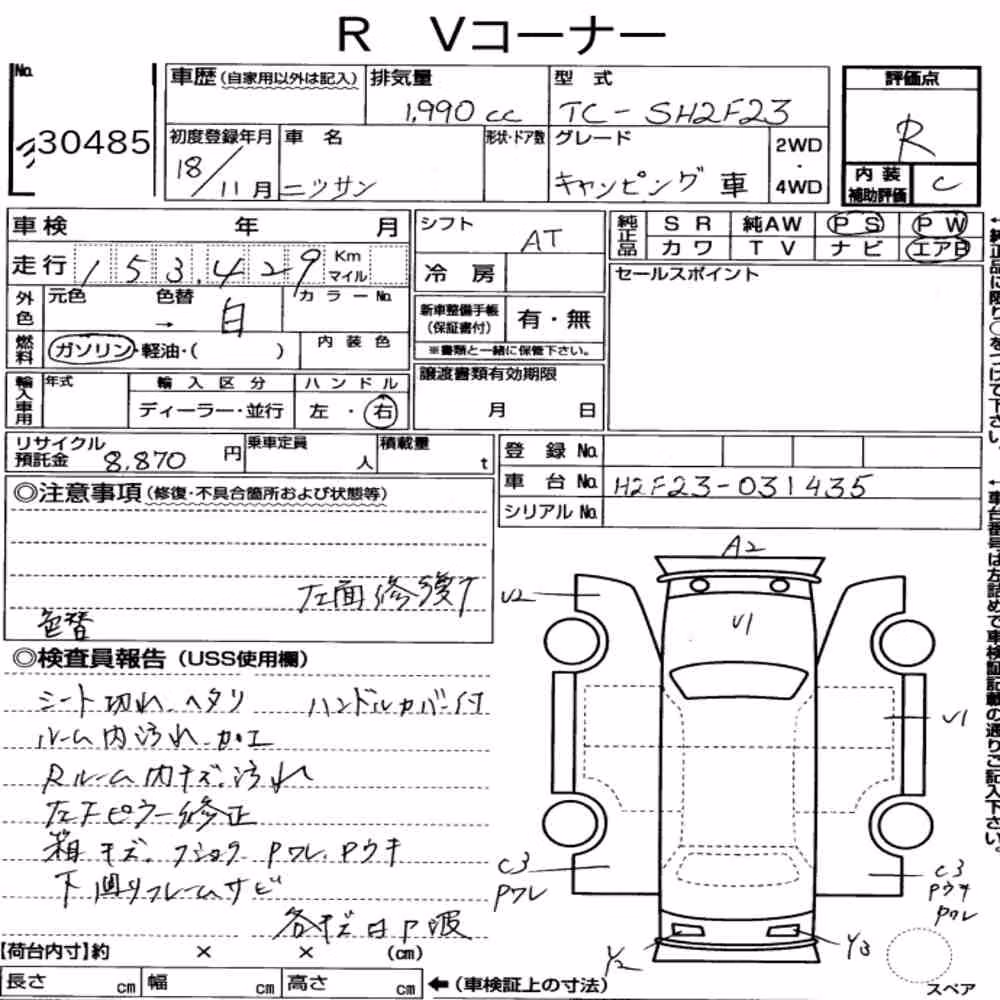 R Vコーナー
No.
30485
車歴 (自家用以外は記入)
排気量
1,990 cc
型 式
TC-SH2F23
評価点
R
初度登録年月
18/11月
車 名
ニッサン
形状・ドア数
グレード
キャンピング車
2WD
・
4WD
内 装
補助評価
C
車検 年 月
シフト
AT
純正品
S R 純AW P S P W
カワ T V ナビ エアB
走行 153,429 Km
マイル
冷 房
セールスポイント
外色
元色 色替 → 白
カラーNo.
新車整備手帳
(保証書付)
有・無
※書類と一緒に保管下さい。
燃料
ガソリン・軽油・( )
内 装 色
輸入車用
年式
輸 入 区 分
ディーラー・並行
ハ ン ド ル
左 ・ 右
譲渡書類有効期限
月 日
リサイクル
預託金 8,870 円
乗車定員
人
積載量
t
登 録 No.
車 台 No. H2F23-031435
シリアル No.
◎注意事項 (修復・不具合箇所および状態等)
左面修復
色替
◎検査員報告 (USS使用欄)
シート切れ、ヘタリ ハンドルカバー付
ルーム内汚れ、加工
Rルーム内キズ、汚れ
左Fピラー修正
箱キズ、フショク Pワレ、Pウキ
下回リフレームサビ
各キズ凹P波
A2
U2
U1
U1
C3
Pワレ
C3
Pウキ
Pワレ
Y2
Y3
スペア
【荷台内寸】約 × × (cm)
長さ cm 幅 cm 高さ cm ←(車検証上の寸法)
←純正品に限り○をつけて下さい。
←車台番号は左詰めで車検証記載の通りご記入下さい。